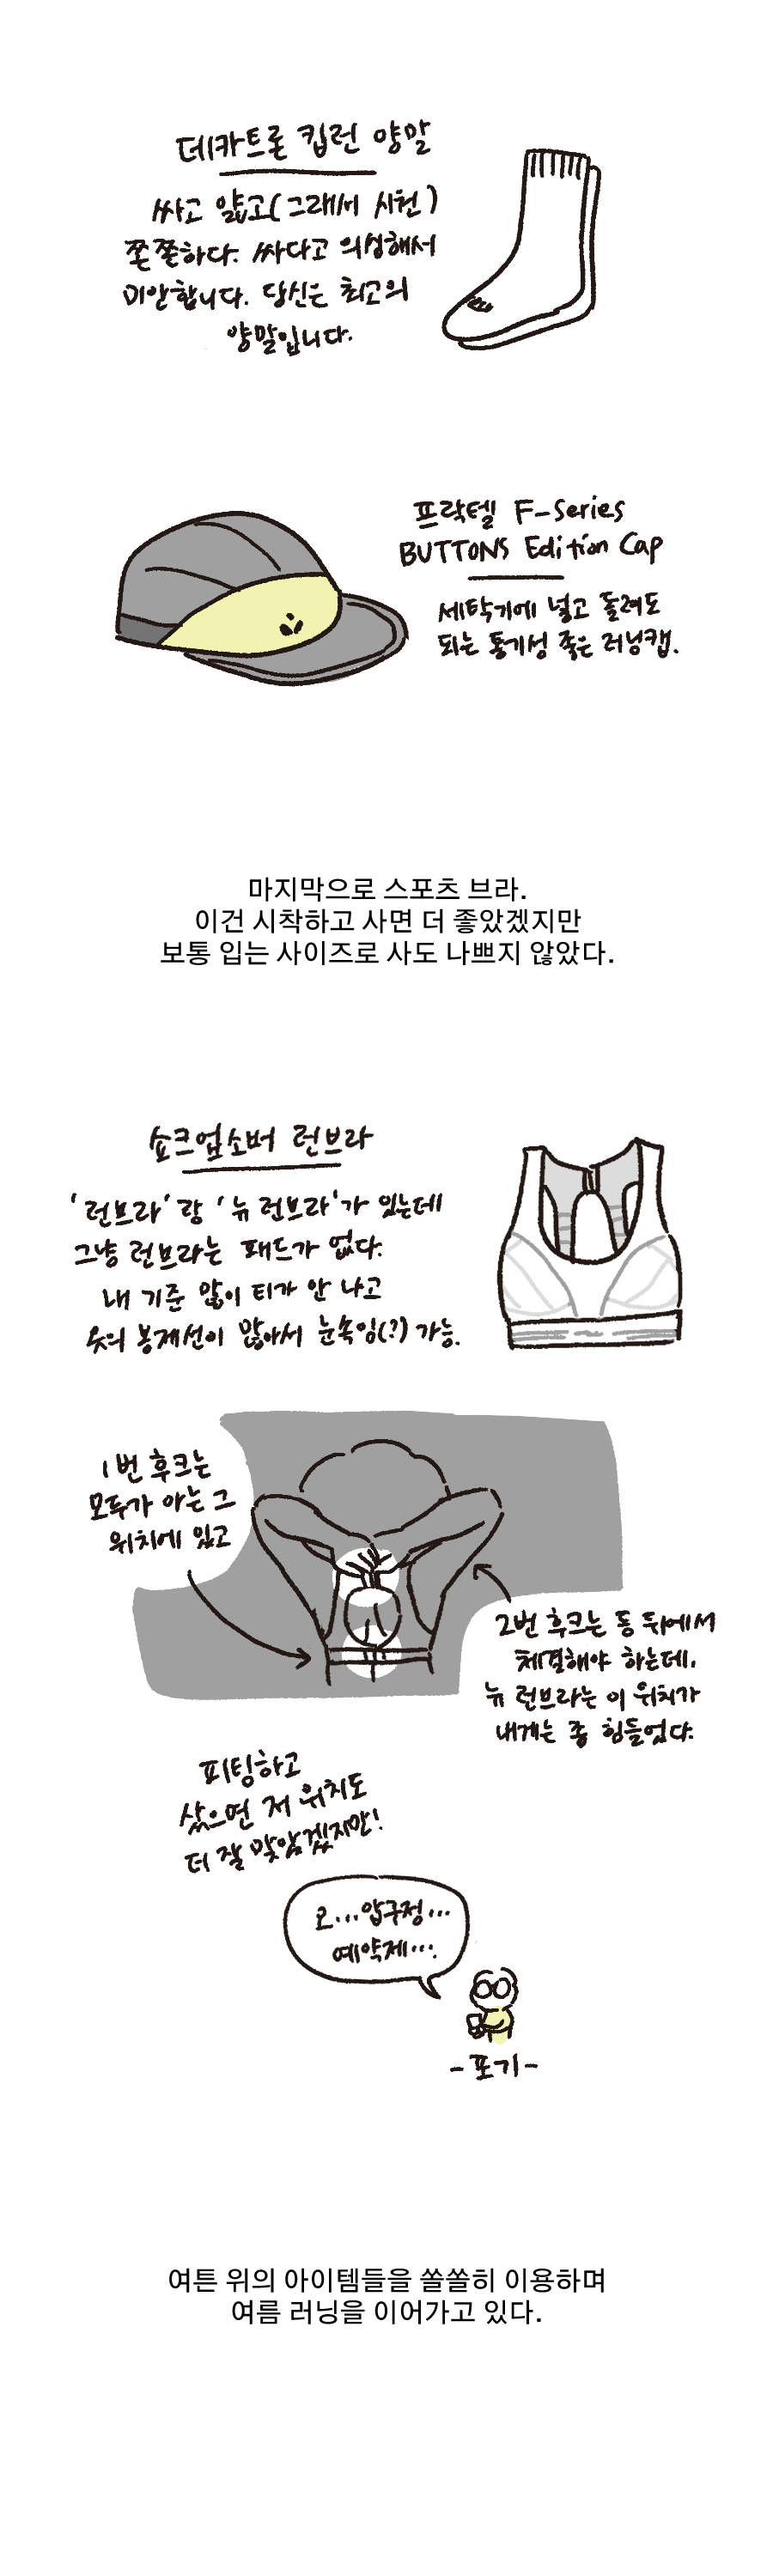 데카트론 킵런 양말
싸고 얇고(그래서 시원)
쫀쫀하다. 싸다고 의심해서
미안합니다. 당신은 최고의
양말입니다.
프락텔 F-Series
BUTTONS Edition Cap
세탁기에 넣고 돌려도
되는 통기성 좋은 러닝캡.
마지막으로 스포츠 브라.
이건 시착하고 사면 더 좋았겠지만
보통 입는 사이즈로 사도 나쁘지 않았다.
쇼크업소버 런브라
'런브라'랑 '뉴 런브라'가 있는데
그냥 런브라는 패드가 없다.
내 기준 많이 티가 안 나고
옷의 봉제선이 많아서 눈속임(?) 가능.
1번 후크는
모두가 아는 그
위치에 있고
2번 후크는 등 뒤에서
체결해야 하는데,
뉴 런브라는 이 위치가
내게는 좀 힘들었다.
피팅하고
샀으면 저 위치도
더 잘 맞았겠지만!
오...압구정...
예약제...
-포기-
여튼 위의 아이템들을 쏠쏠히 이용하며
여름 러닝을 이어가고 있다.